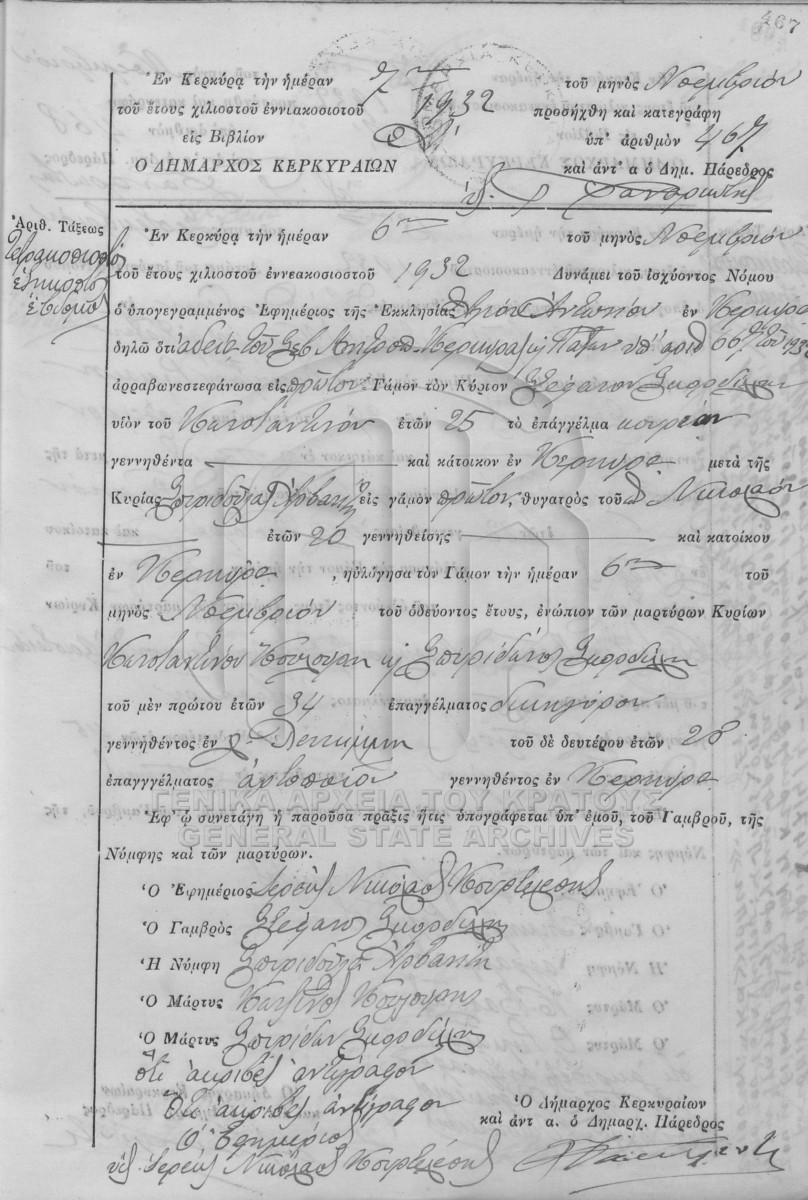 467
Ἐν Κερκύρᾳ τὴν ἡμέραν 7ην τοῦ μηνὸς Νοεμβρίου
τοῦ ἔτους χιλιοστοῦ ἐννιακοσιοτοῦ 1932 προσήχθη καὶ κατεγράφη
εἰς Βιβλίον ὑπ' ἀριθμὸν 467
Ο ΔΗΜΑΡΧΟΣ ΚΕΡΚΥΡΑΙΩΝ καὶ ἀντ' α ὁ Δημ. Πάρεδρος
Ἀριθ. Τάξεως
Τετρακοσιοστὸς
ἑξηκοστὸς
ἕβδομος
Ἐν Κερκύρᾳ τὴν ἡμέραν 6ην τοῦ μηνὸς Νοεμβρίου
τοῦ ἔτους χιλιοστοῦ ἐννεακοσιοστοῦ 1932 Δυνάμει τοῦ ἰσχύοντος Νόμου
ὁ ὑπογεγραμμένος Ἐφημέριος τῆς Ἐκκλησίας Ἁγίου Ἀντωνίου ἐν Κερκύρᾳ
δηλῶ ὅτι ἀδείᾳ τοῦ Σεβ. Μητροπ. Κερκύρας κ Παξῶν ὑπ' ἀριθ 667 τοῦ 1932
ἀρραβωνεστεφάνωσα εἰς πρῶτον Γάμον τὸν Κύριον Στέφανον Σκορδίλην
υἱὸν τοῦ Κωνσταντίνου ἐτῶν 25 τὸ ἐπάγγελμα κουρέα
γεννηθέντα καὶ κάτοικον ἐν Κέρκυρᾳ μετὰ τῆς
Κυρίας Σπυριδούλας Ἀρβανίτη εἰς γάμον πρῶτον, θυγατρὸς τοῦ Νικολάου
ἐτῶν 20 γεννηθείσης καὶ κατοίκου
ἐν Κερκύρᾳ, ηὐλόγησα τὸν Γάμον τὴν ἡμέραν 6ην τοῦ
μηνὸς Νοεμβρίου τοῦ ὁδεύοντος ἔτους, ἐνώπιον τῶν μαρτύρων Κυρίων
Κωνσταντίνου κ Σπυρίδωνος Σκορδίλη
τοῦ μὲν πρώτου ἐτῶν 34 ἐπαγγέλματος δικηγόρου
γεννηθέντος ἐν Λευκίμμῃ τοῦ δὲ δευτέρου ἐτῶν 28
ἐπαγγγέλματος ἀρτοποιοῦ γεννηθέντος ἐν Κερκύρᾳ
ΓΕΝΙΚΑ ΑΡΧΕΙΑ ΤΟΥ ΚΡΑΤΟΥΣ
GENERAL STATE ARCHIVES
Ἐφ' ᾧ συνετάγη ἡ παροῦσα πρᾶξις ἥτις ὑπογράφεται ὑπ' ἐμοῦ, τοῦ Γαμβροῦ, τῆς
Νύμφης καὶ τῶν μαρτύρων.
Ὁ Ἐφημέριος Ἱερεὺς Νικόλαος
Ὁ Γαμβρὸς Στέφανος Σκορδίλης
Ἡ Νύμφη Σπυριδούλα Ἀρβανίτη
Ὁ Μάρτυς Κωνσ/τῖνος
Ὁ Μάρτυς Σπυρίδων Σκορδίλης
Ὅτι ἀκριβὲς ἀντίγραφον
Ὅτι ἀκριβὲς ἀντίγραφον
Ὁ Ἐφημέριος
Ἱερεὺς Νικόλαος
Ὁ Δήμαρχος Κερκυραίων
καὶ ἀντ α. ὁ Δημαρχ. Πάρεδρος